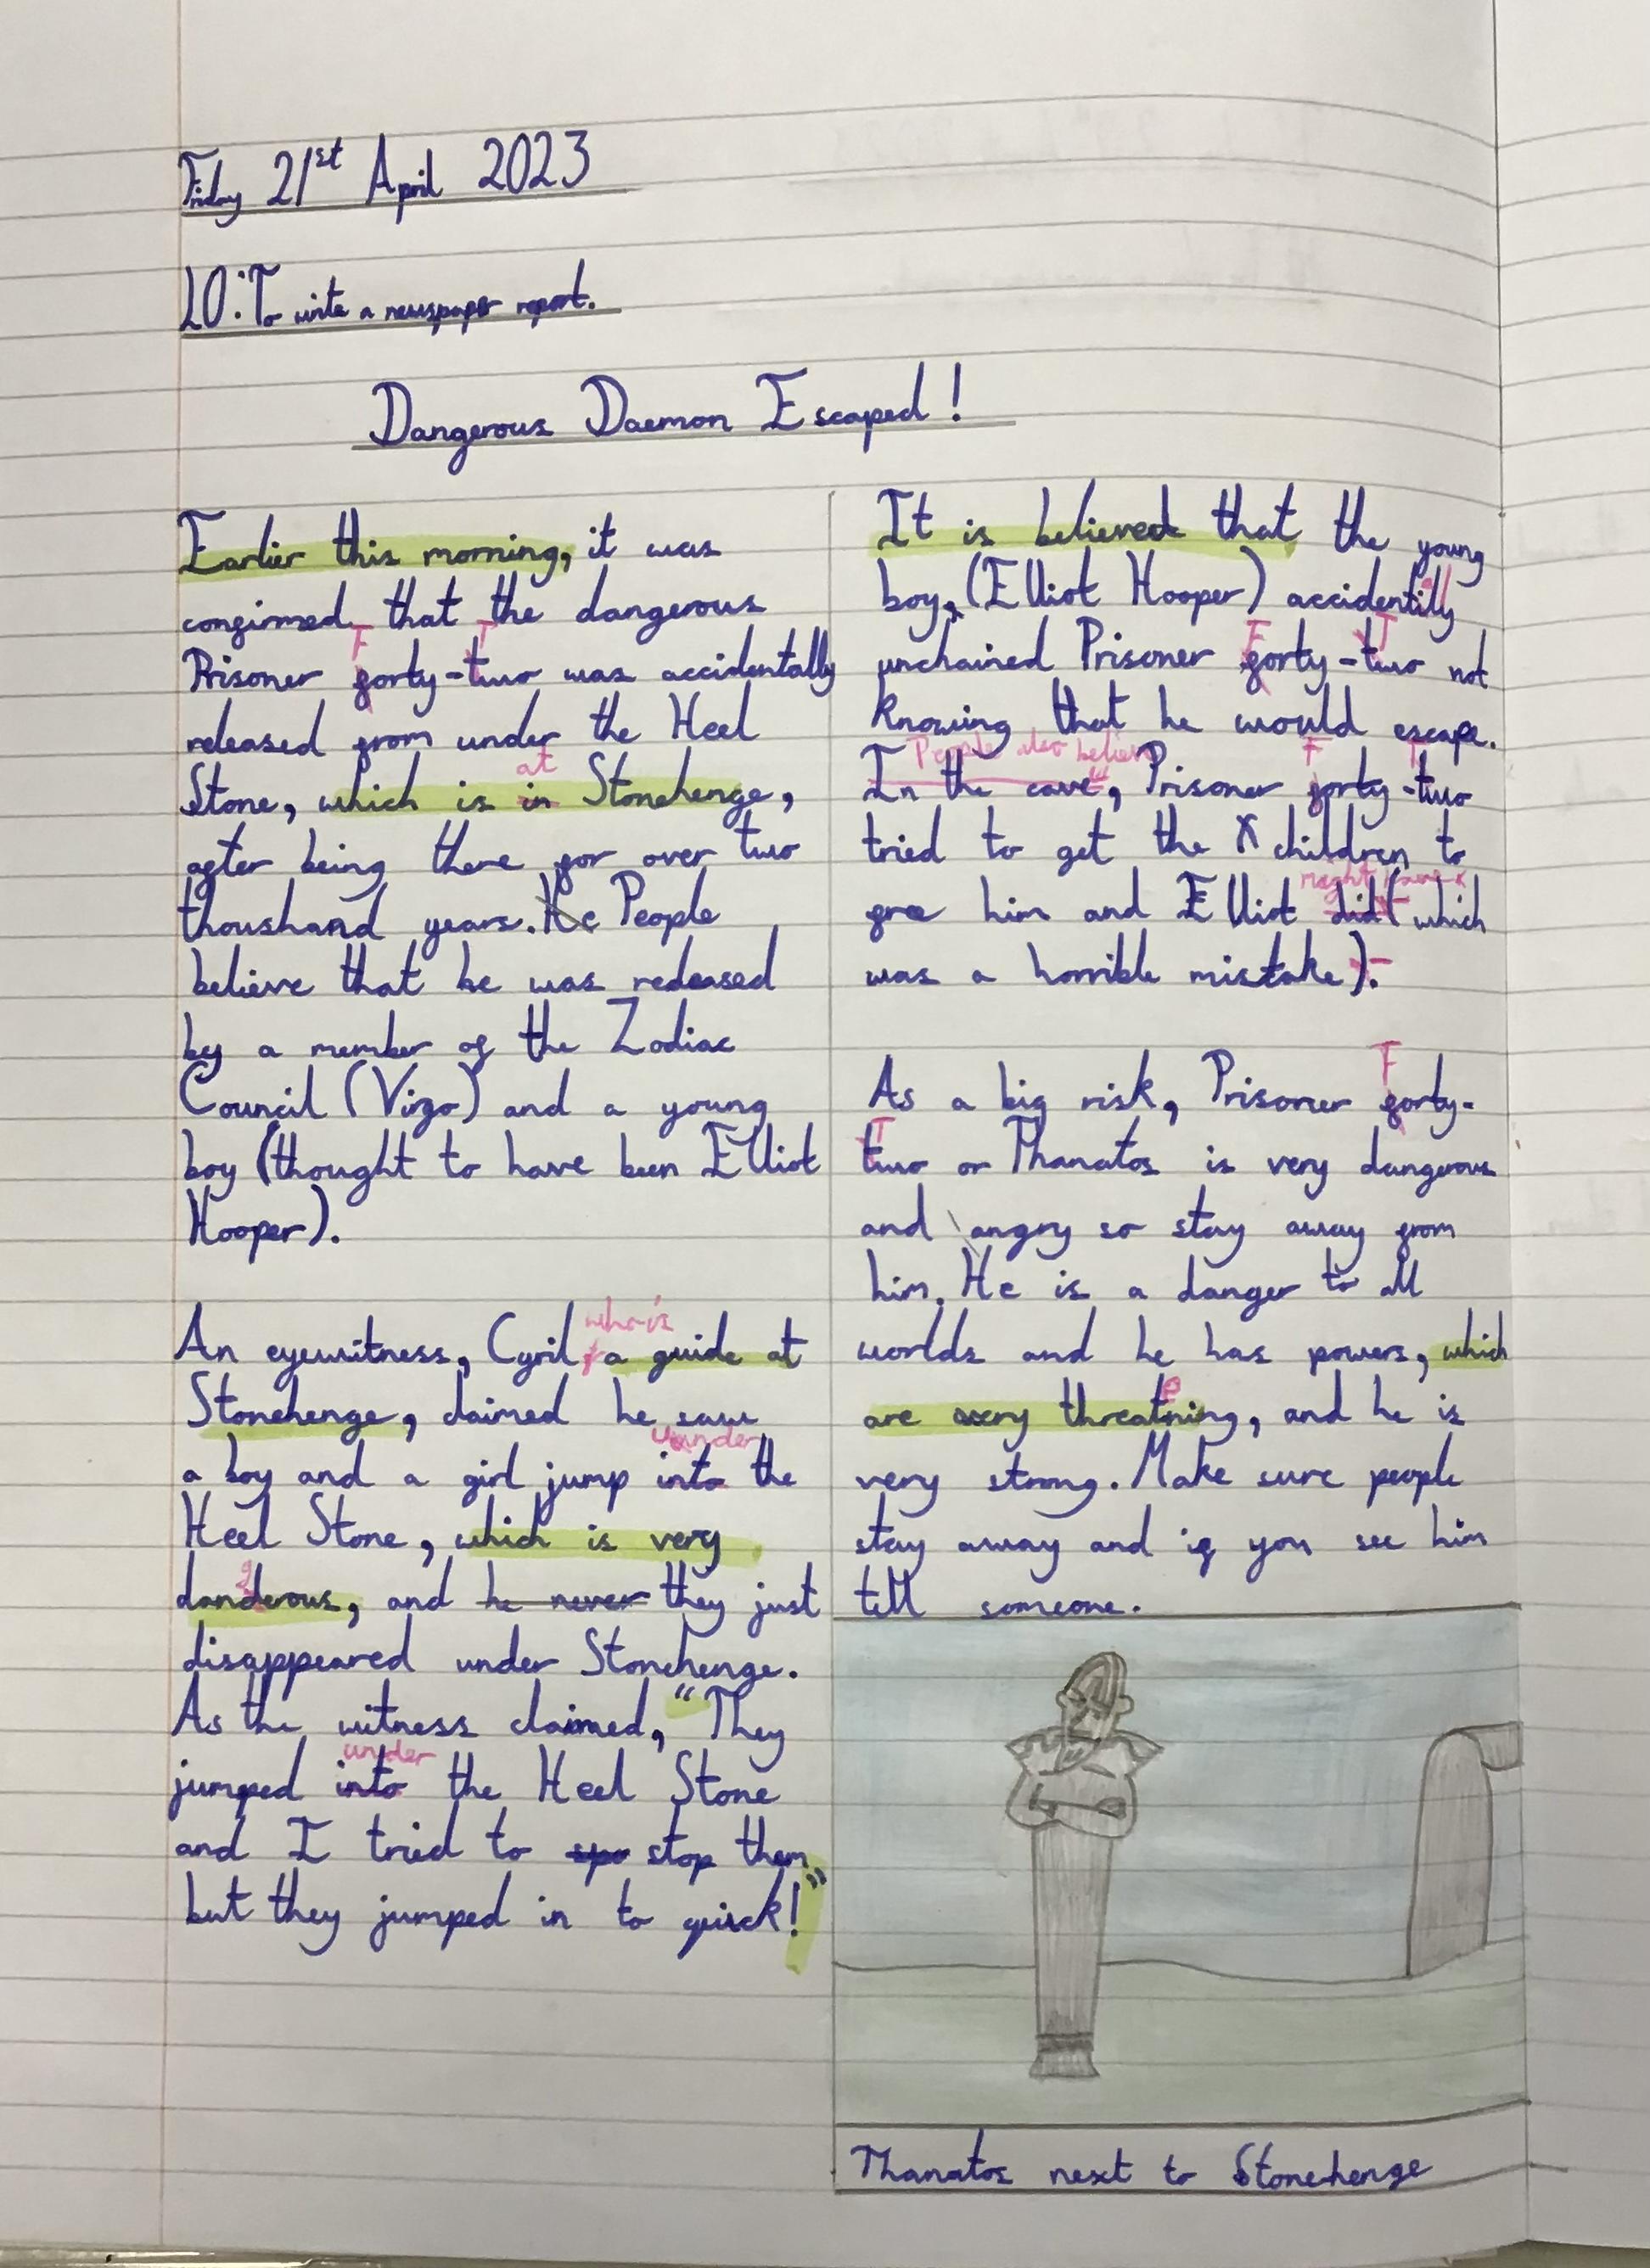 Friday 21st April 2023
LO: To write a newspaper report.
Dangerous Daemon Escaped!
Earlier this morning, it was
confirmed that the dangerous
F T
Prisoner forty-two was accidentally
released from under the Heel
at
Stone, which is in Stonehenge,
after being there for over two
thoushand years. He People
believe that he was redeased
by a member of the Zodiac
Council (Virgo) and a young
boy (thought to have been Elliot
Hooper).
who is
An eyewitness, Cyril, a guide at
Stonehenge, claimed he saw
under
a boy and a girl jump into the
Heel Stone, which is very
g
danderous, and he never they just
disappeared under Stonehenge.
As the witness claimed, "They
under
jumped into the Heel Stone
and I tried to spo stop them
but they jumped in to quick!"
It is believed that the young
al
boy, (Elliot Hooper) accidentilly
F T
unchained Prisoner forty-two not
knowing that he would escape.
People also believe F T
In the cave, Prisoner forty-two
tried to get the children to
might have
free him and Elliot did (which
was a horrible mistake).
F
As a big risk, Prisoner forty-
T
two or Thanatos is very dangerous
and angry so stay away from
him. He is a danger to all
worlds and he has powers, which
e
are very threatning, and he is
very strong. Make sure people
stay away and if you see him
tell someone.
Thanatos next to Stonehenge